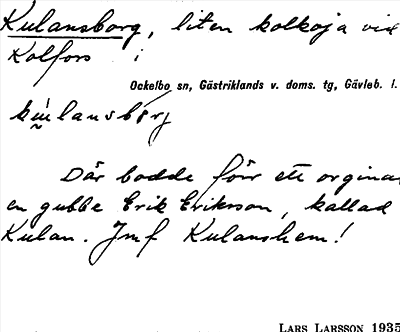 Kulansborg, liten kolkoja vid
Kolfors i
Ockelbo sn, Gästriklands v. doms. tg, Gävleb. l.
kulansbòrj
Där bodde förr ett orginal
en gubbe Erik Eriksson, kallad
Kulan. Jmf Kulanshem!
LARS LARSSON 1935